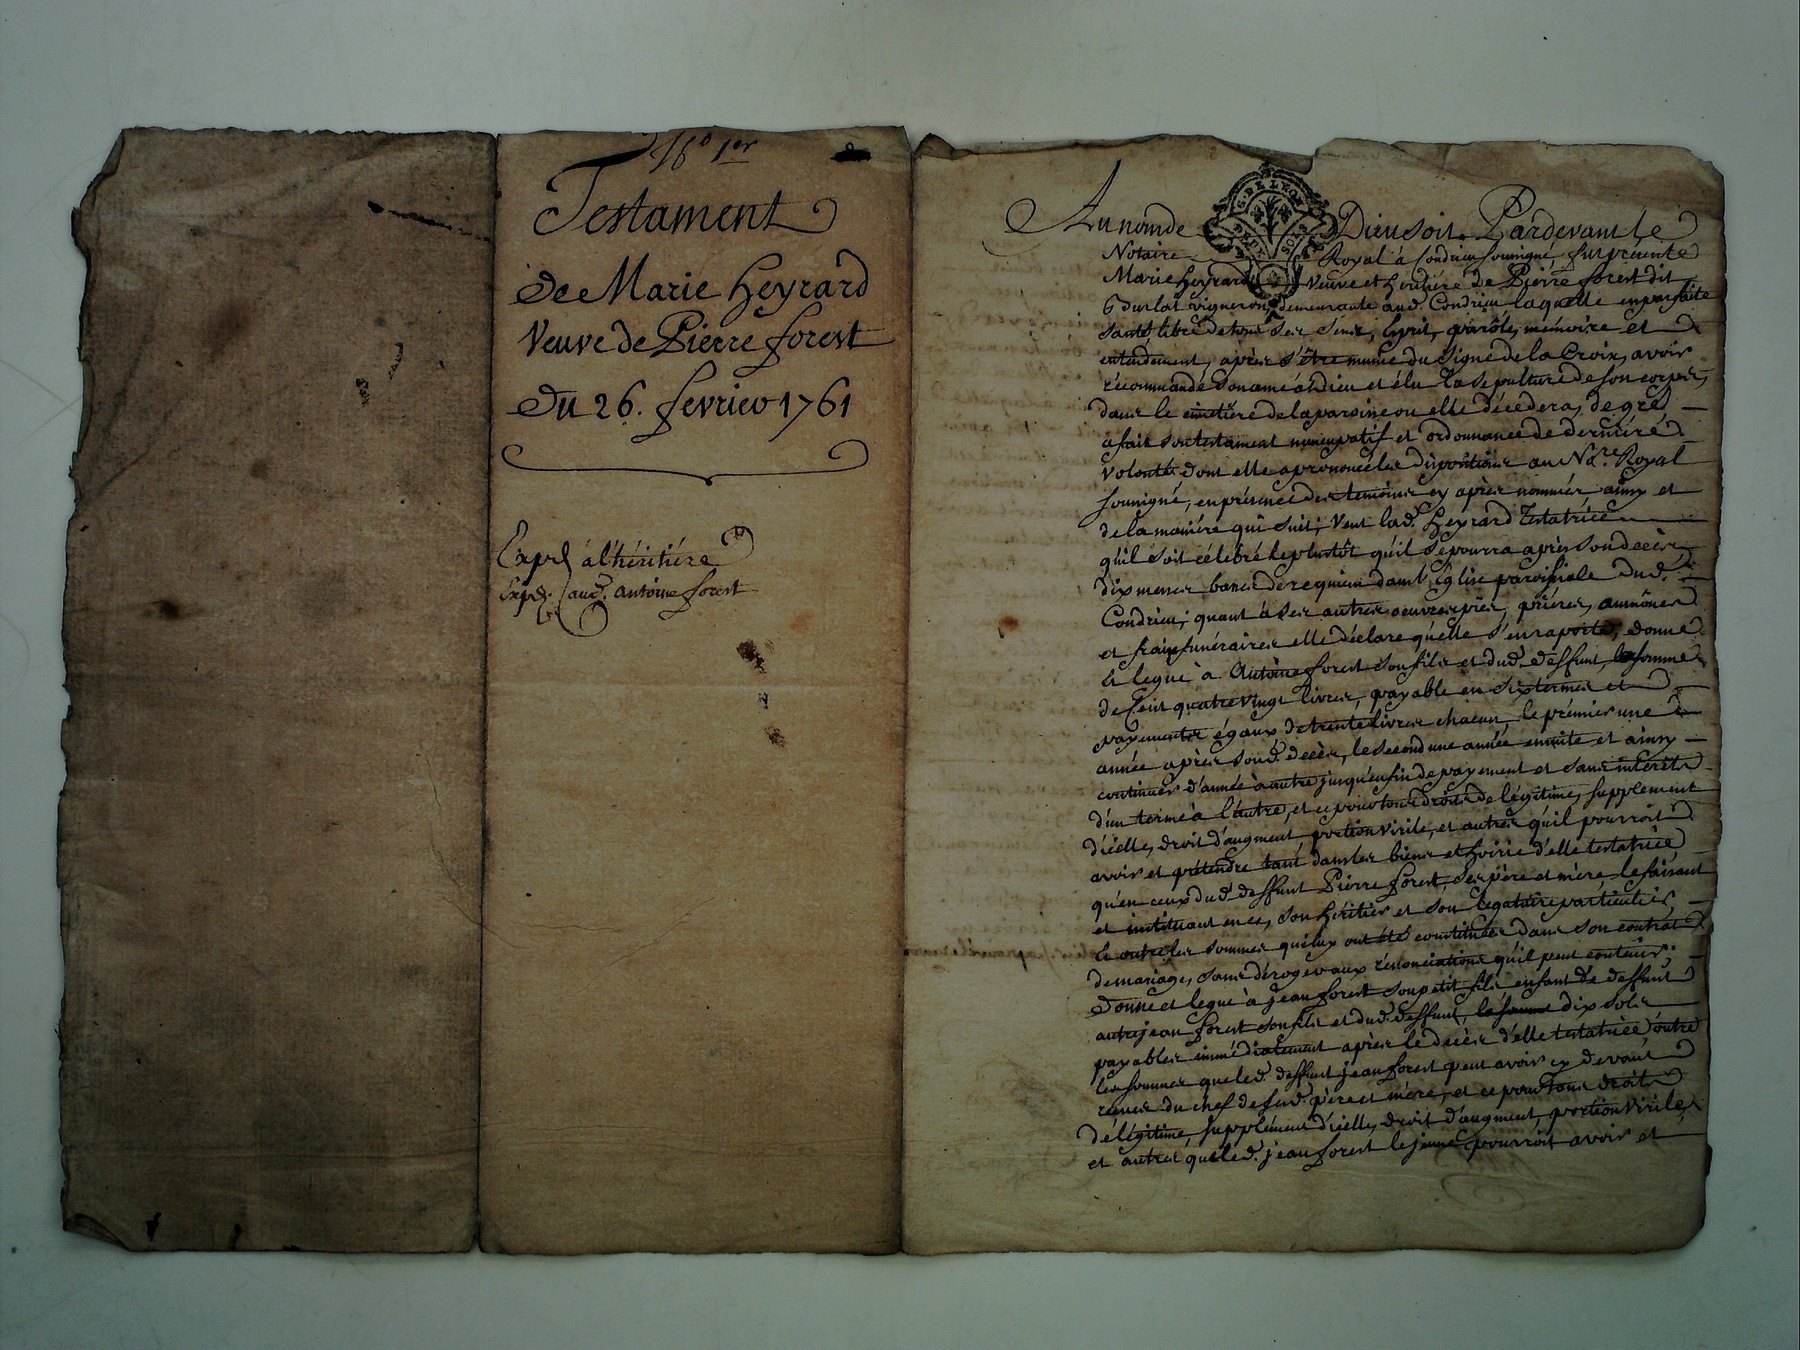 Testament
De Marie Heyrard
Veuve de Pierre forest
Du 26. fevrier 1761
Exp.d à l'héritiére
Exp.d aud.t Antoine forest
Au nom de Dieu soit. Pardevant le
Notaire Royal à Condrieu soussigné fut présente
Marie Heyrard veuve et héritiére de Pierre forest dit
vigneron demeurante aud. Condrieu laquelle en parfaite
santé, libre de tous ses sens, esprit, parôle, mémoire et
entendement, après s'être munie du signe de la Croix, avoir
récommandé son ame à Dieu et élu la sepulture de son corps,
dans le cimetiére de la paroisse ou elle décedera, de gré,
à fait son testament nuncupatif et ordonnance de derniére
volonté, dont elle a prononcé les dispositions au No.re Royal
soussigné, en présence des temoins cy après nommés ainsy et
de la maniére qui suit; Veut lad. Heyrard Testatrice
qu'il soit célébré le plustôt qu'il se pourra après son decès
dix messes basses de requiem dans l'Eglise paroissiale dud.
Condrieu; quant à ses autres oeuvres pies, priéres, aumônes
et frais funéraires elle déclare qu'elle s'en raporte, donne
et legue à Antoine forest son fils et dud. deffunt, la somme
de Cent quatre vingt livres, payable en six termes et
payements égaux de trente livres chacun, le prémier une
année après sond. decès, le second une année ensuite et ainsy
continuer d'année à autre jusqu'en fin de payement et sans intérêts
d'un terme à l'autre, et ce pour tous droits de légitime, supplement
d'icelle, droit d'augment, portion virile, et autres qu'il pourroit
avoir et prétendre tant dans les biens et hoirie d'elle testatrice
qu'en ceux dud. deffunt Pierre forest, ses père et mère, le faisant
et instituant en ce, son héritier et son légataire particulier,
et outre les sommes qui luy ont été constituées dans son contrat
de mariage, sans déroger aux rénonciations qu'il peut contenir;
Donne et legue à jean forest son petit fils enfant de deffunt
autre jean forest son fils et dud. deffunt, la somme dix sols
payables immédiatement après le décès d'elle testatrice outre
les sommes que led. deffunt jean forest peut avoir cy devant
reçues du chef de sesd. père et mère, et ce pour tous droits
de légitime, supplément d'icelle, droit d'augment, portion virile,
et autres que led. jean forest le jeune pourroit avoir et